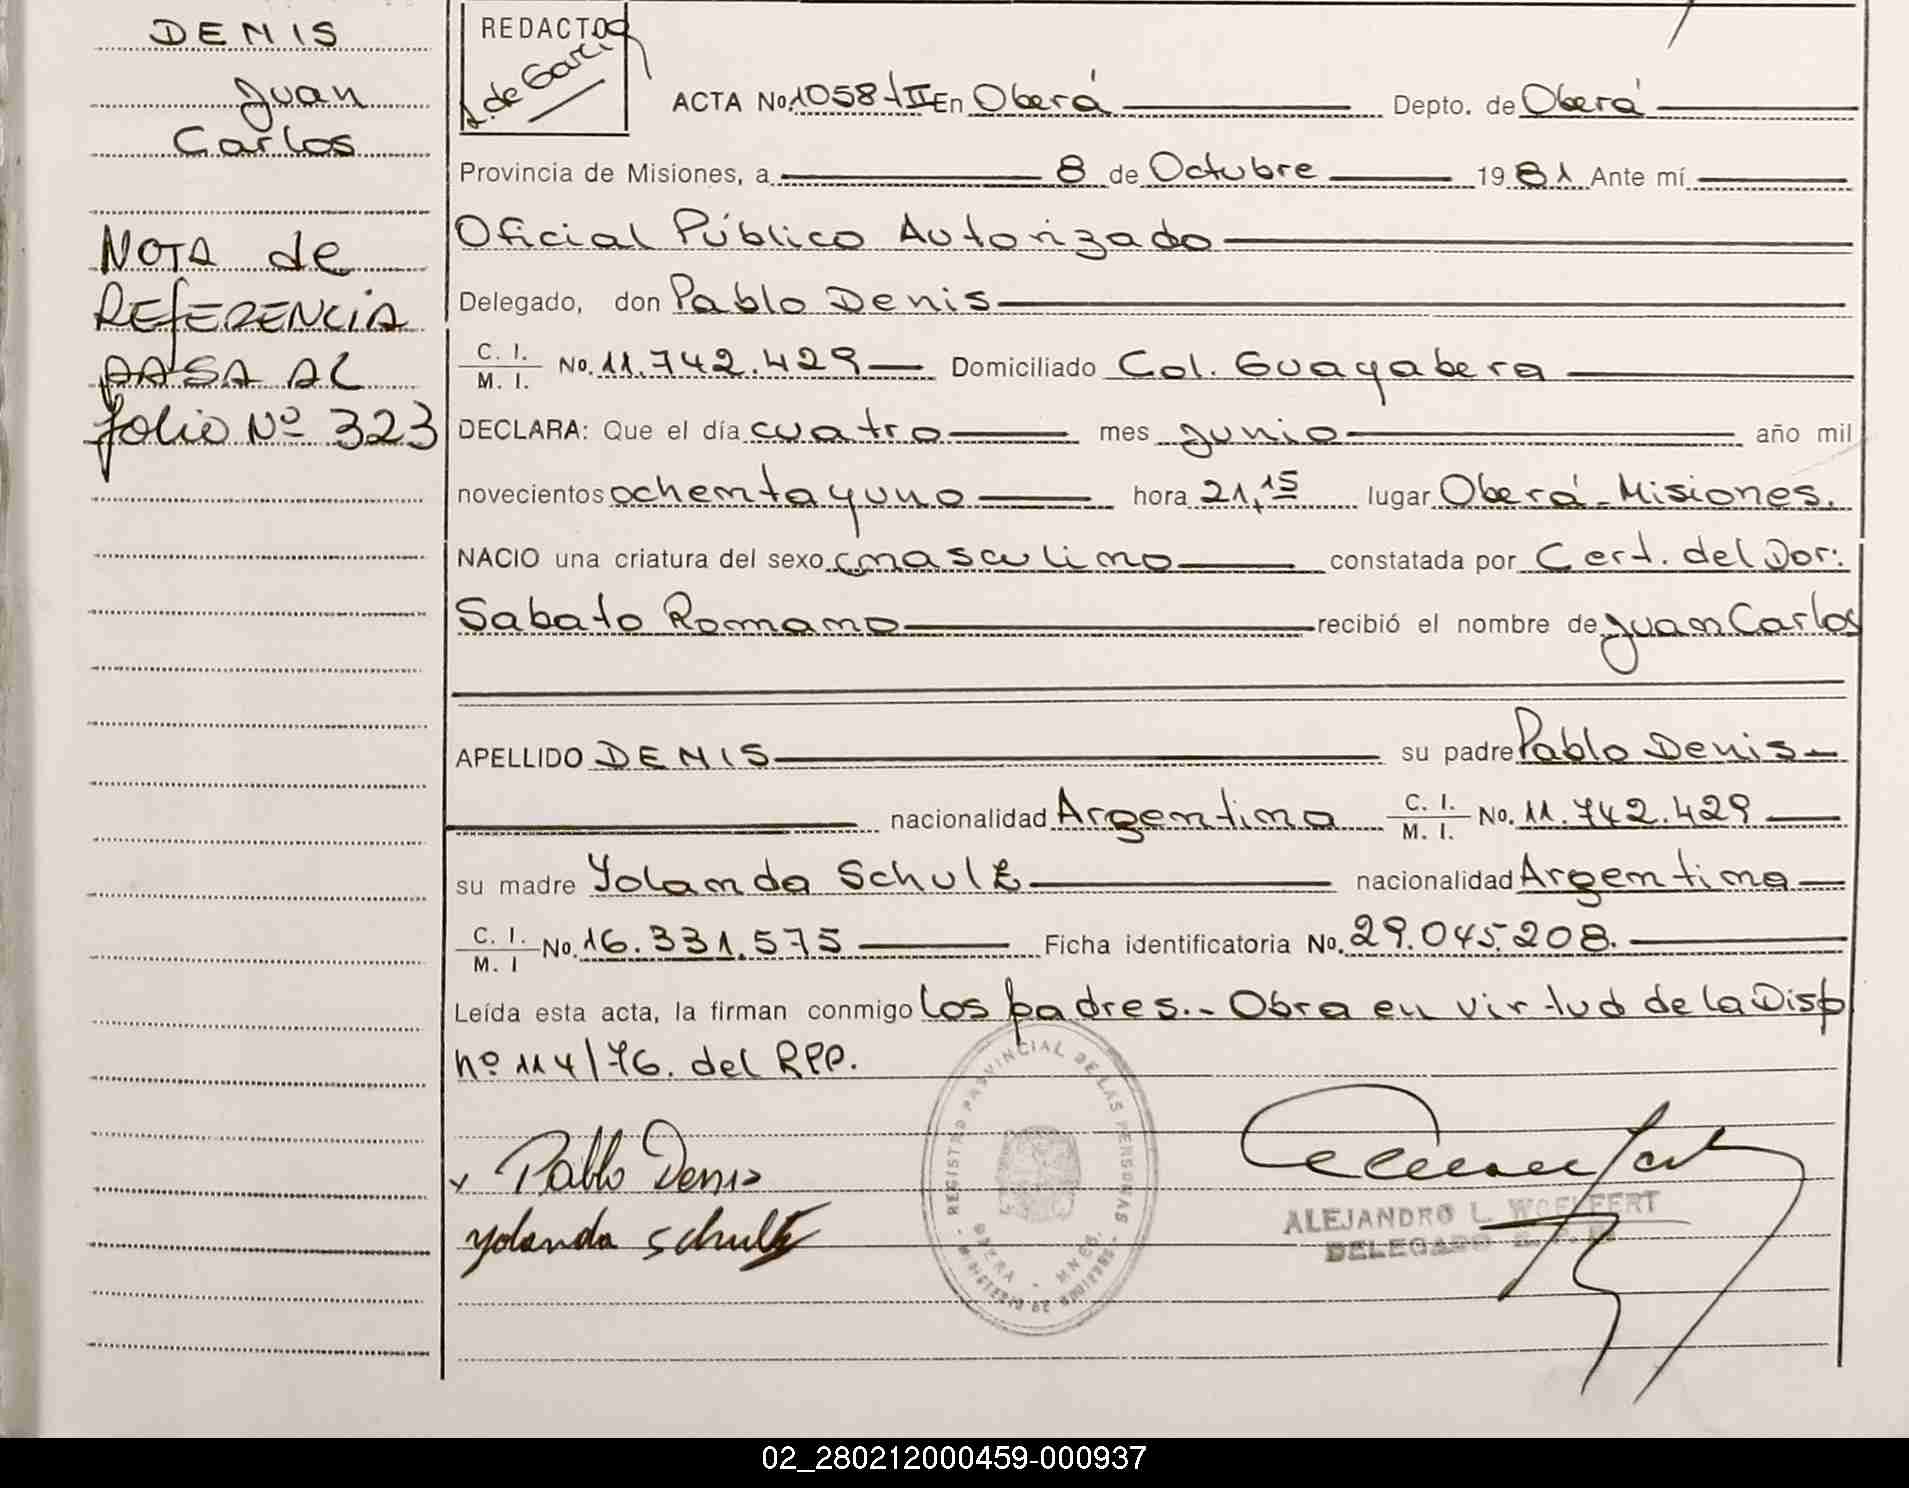 DENIS
Juan
Carlos
NOTA de
REFERENCIA
PASA AL
folio Nº 323
REDACTOR
L. de Garci
ACTA No. 1058-tII En Oberá Depto. de Oberá
Provincia de Misiones, a 8 de Octubre 1981 Ante mí
Oficial Público Autorizado
Delegado, don Pablo Denis
C. I. / M. I. No. 11.742.429 Domiciliado Col. Guayabera
DECLARA: Que el día cuatro mes junio año mil
novecientos ochentayuno hora 21,15 lugar Oberá-Misiones.
NACIO una criatura del sexo masculino constatada por Cert. del Dor:
Sabato Romano recibió el nombre de Juan Carlos
APELLIDO DENIS su padre Pablo Denis
nacionalidad Argentina C. I. / M. I. No. 11.742.429
su madre Yolanda Schultz nacionalidad Argentina
C. I. / M. I No. 16.331.575 Ficha identificatoria No. 29.045.208.
Leída esta acta, la firman conmigo los padres.- Obra en virtud de la Disp
nº 114/76. del RPP.
x Pablo Denis
Yolanda Schultz
REGISTRO PROVINCIAL DE LAS PERSONAS
OBERA - MNES.
MINISTERIO DE GOBIERNO
ALEJANDRO L. WOELFERT
DELEGADO
02_280212000459-000937